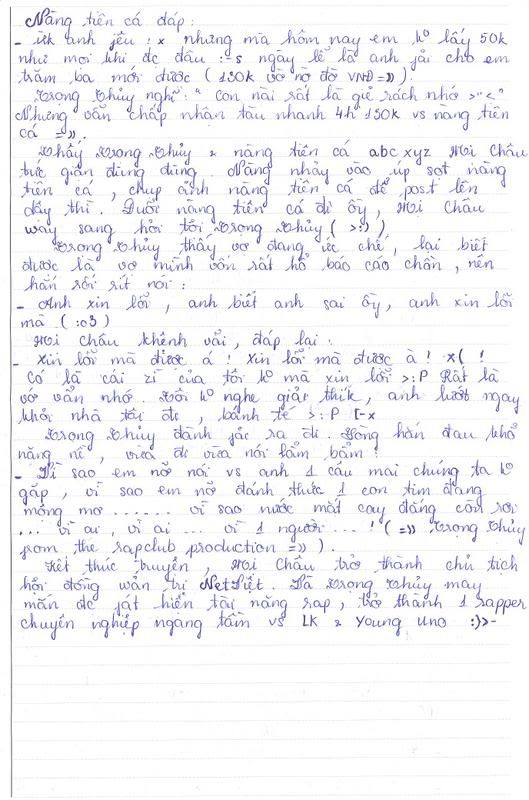 Nàng tiên cá đáp:
- ừk anh yêu :x nhưng mà hôm nay em k° lấy 50k
như mọi khi đc đâu :-s ngày lễ là anh jải cho em
trăm ba mới được (130k vờ nờ đờ VNĐ =)) ).
Trọng Thủy nghĩ: " Con nài rất là giẻ rách nhớ >"<"
Nhưng vẫn chấp nhận tàu nhanh 4h 130k vs nàng tiên
cá =)).
Thấy Trọng Thủy & nàng tiên cá abc xyz Mị Châu
tức giận đùng đùng. Nàng nhảy vào úp sọt nàng
tiên cá, chụp ảnh nàng tiên cá để post lên
dậy thì. Đuổi nàng tiên cá đi ồy, Mị Châu
way sang hỏi tội Trọng Thủy ( >:) ).
Trọng Thủy thấy vợ đang ức chế, lại biết
được là vợ mình vốn rất hổ báo cáo chồn, nên
hắn rối rít nói:
- Anh xin lỗi, anh biết anh sai ồy, anh xin lỗi
mà (:o3)
Mị Châu khênh vãi, đáp lại:
- Xin lỗi mà được á! Xin lỗi mà được à! x( !
Cố là cái zì của tôi k° mà xin lỗi >:P Rất là
vớ vẩn nhớ. Tôi k° nghe giải thík, anh lướt ngay
khỏi nhà tôi đi, bánh tẻ >:P [-x
Trọng Thủy đành jải ra đi. Lòng hắn đau khổ
nặng nề, vừa đi vừa nói lẩm bẩm:
- Vì sao em nỡ nói vs anh 1 câu mai chúng ta k°
gặp, vì sao em nỡ đánh thức 1 con tim đang
mộng mơ ...... vì sao nước mắt cay đắng còn rơi
... vì ai, vì ai ... vì 1 người ... ! ( =)) Trọng Thủy
from the rapclub production =)) ).
Kết thúc truyện, Mị Châu trở thành chủ tịch
hội đồng wản trị NetViệt. Và Trọng Thủy may
mắn đc ját hiện tài năng rap, trở thành 1 rapper
chuyên nghiệp ngang tầm vs LK & Young Uno :)>-